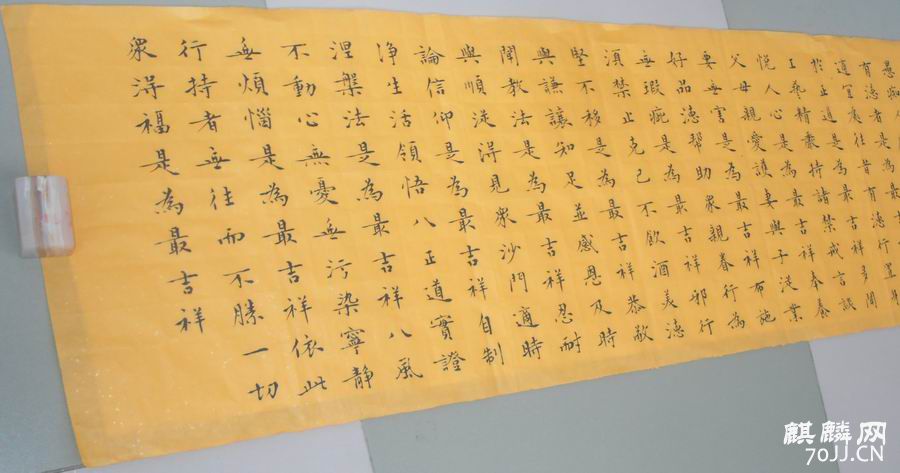 愚痴人
有德者是為最吉
適宜處往昔有德行置身
於正道是為最吉祥多聞
工藝精嚴持諸禁戒言談
悅人心是為最吉祥奉養
父母親愛護妻與子從業
要無害是為最吉祥布施
好品德幫助眾親眷行為
無瑕疵是為最吉祥邪行
須禁止克己不飲酒美德
堅不移是為最吉祥恭敬
與謙讓知足並感恩及時
聞教法是為最吉祥忍耐
與順從得見眾沙門適時
論信仰是為最吉祥自制
淨生活領悟八正道實證
涅槃法是為最吉祥八風
不動心無憂無污染寧靜
無煩惱是為最吉祥依此
行持者無往而不勝一切
眾得福是為最吉祥
麒麟网
70JJ.CN